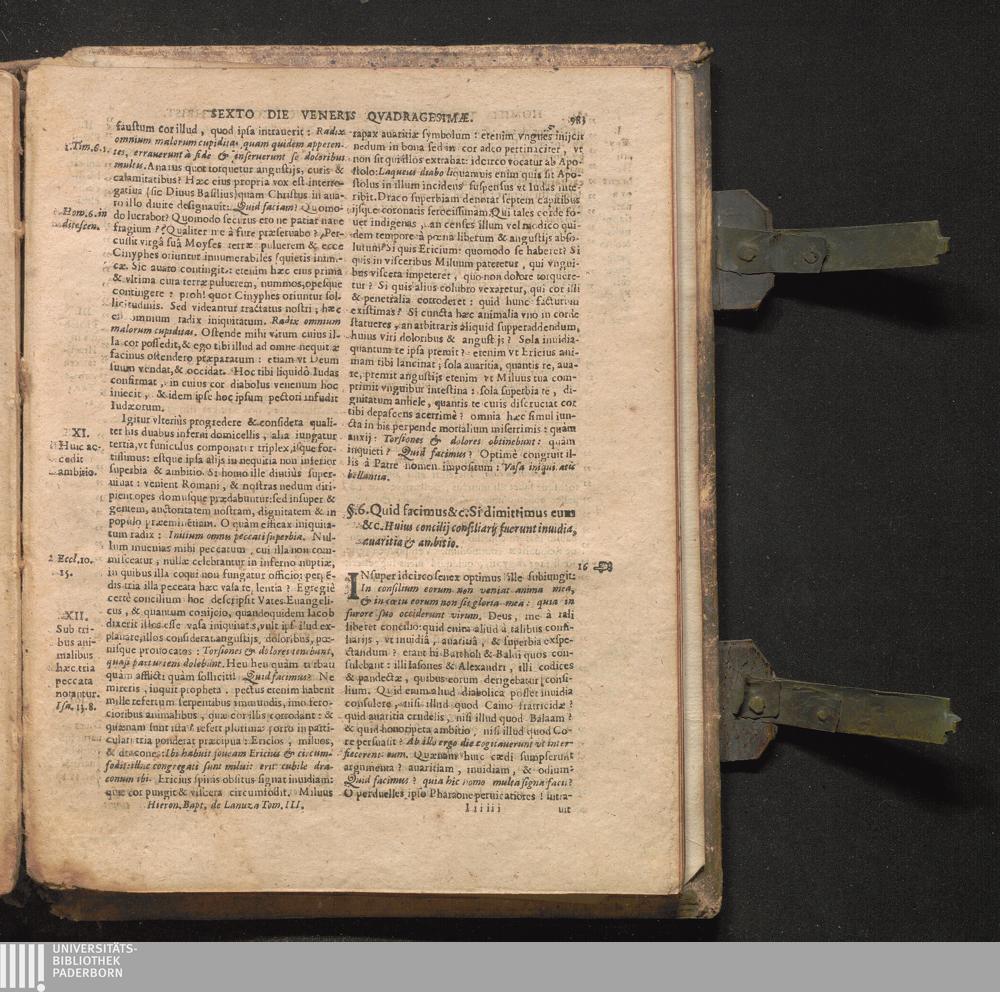 SEXTO DIE VENERIS QVADRAGESIMÆ. 983
faustum cor illud, quod ipsa intrauerit: Radix
1.Tim.6.
omnium malorum cupiditas, quam quidem appeten-
tes, errauerunt à fide & inseruerunt se doloribus
multis. Anxius quot torquetur angustijs, curis &
calamitatibus? Hæc eius propria vox est interro-
gatiua (sic Diuus Basilius) quam Christus in aua-
ro illo diuite designauit: Quid faciam? Quomo-
Hom. 6. in
ditescen.
do lucrabor? Quomodo securus ero ne patiar nau-
fragium? Qualiter me à fure præseruabo? Per-
cussit virgâ suâ Moyses terræ puluerem & ecce
Cinyphes oriuntur innumerabiles quietis inimi-
cæ. Sic auaro contingit: etenim hæc eius prima
& vltima cura terræ puluerem, nummos, opesque
contingere? proh! quot Cinyphes oriuntur sol-
licitudinis. Sed videantur tractatus nostri; hæc
est omnium radix iniquitatum. Radix omnium
malorum cupiditas. Ostende mihi virum cuius il-
la cor possedit, & ego tibi illud ad omne nequitiæ
facinus ostendero præparatum: etiam vt Deum
suum vendat, & occidat. Hoc tibi liquidò Iudas
confirmat, in cuius cor diabolus venenum hoc
iniecit, & idem ipse hoc ipsum pectori infudit
Iudæorum.
XI.
Huic ac-
cedit
ambitio.
Igitur vlteriùs progredere & considera quali-
ter his duabus inferni domicellis, alia iungatur
tertia, vt funiculus componatur triplex, isque for-
tissimus: estque ipsa alijs in nequitia non inferior
superbia & ambitio. Si homo ille diutiùs super-
uiuat: venient Romani, & nostras nedum diri-
pient opes domusque prædabuntur: sed insuper &
gentem, auctoritatem nostram, dignitatem & in
populo præeminentiam. O quàm efficax iniquita-
tum radix: Initium omnis peccati superbia. Nul-
lum inuenias mihi peccatum, cui illa non com-
2 Eccl.10.
15.
misceatur, nullæ celebrantur in inferno nuptiæ,
in quibus illa coqui non fungatur officio:
dis tria illa peccata hæc vasa Egregiè
certè concilium hoc descripsit Vates Euangeli-
cus, & quantum conijcio, quandoquidem Iacob
dixerit illos esse vasa iniquitatis, vult ipse illud ex-
planare, illos considerat angustijs, doloribus, pœ-
XII.
Sub tri-
bus ani-
malibus
hæc tria
peccata
notantur.
Isa. 13.8.
nisque prouocatos: Torsiones & dolores tenebunt,
quasi parturiens dolebunt. Heu heu quàm turbati
quàm afflicti quàm solliciti! Quid facimus? Ne
mireris, inquit propheta, pectus etenim habent
mille refertum serpentibus immundis, imo fero-
cioribus animalibus, quæ cor illis corrodant: &
quænam sunt ista? refert plurima: porro in parti-
culari tria ponderat præcipua: Ericios, miluos,
& dracone: Ibi habuit foueam Ericius & circum-
fodit: illuc congregati sunt milui: erit cubile dra-
conum ibi. Ericius spinis obsitus signat inuidiam:
quæ cor pungit & viscera circumfodit. Miluus
Hieron. Bapt. de Lanuza Tom. III.
rapax auaritiæ symbolum: etenim vngues inijcit
nedum in bona sed in cor adeo pertinaciter, vt
non sit qui illos extrahat: idcirco vocatur ab Apo-
stolo: Laqueus diaboli quamuis enim quis sit Apo-
stolus in illum incidens suspensus vt Iudas inte-
ribit. Draco superbiam denotat septem capitibus
ijsque coronatis ferocissimam. Qui tales corde fo-
uet indigenas, an censes illum vel modico qui-
dem tempore à pœna liberum & angustijs abso-
lutum? Si quis Ericium: quomodo se haberet? Si
quis in visceribus Miluum pateretur, qui vngui-
bus viscera impeteret, quo non dolore torquere-
tur? Si quis alius colubro vexaretur, qui cor illi
& penetralia corroderet: quid hunc facturum
existimas? Si cuncta hæc animalia vno in corde
statueres, an arbitraris aliquid supperaddendum,
huius viri doloribus & angustijs? Sola inuidia
quantum te ipsa premit? etenim vt Ericius ani-
mam tibi lancinat; sola auaritia, quantis te, aua-
re, premit angustijs etenim vt Miluus tua com-
primit vnguibus intestina: sola superbia te, di-
gnitatum anhele, quantis te curis discruciat cor
tibi depascens acerrimè? omnia hæc simul iun-
cta in his perpende mortalium miserrimis: quàm
anxij: Torsiones & dolores obtinebunt: quàm
inquieti? Quid facimus? Optimè congruit il-
lis à Patre nomen impositum: Vasa iniquitatis
bellantia.
§.6. Quid facimus &c. Si dimittimus eum
&c. Huius concilij consiliarij fuerunt inuidia,
auaritia & ambitio.
16
INsuper idcirco senex optimus ille subiungit:
In consilium eorum non veniat anima mea,
& in cœtu eorum non sit gloria mea: quia in
furore suo occiderunt virum. Deus, me à tali
liberet concilio: quid enim aliud à talibus consi-
liarijs, vt inuidiâ, auaritiâ, & superbia exspe-
ctandum? erant hi Bartholi & Baldi quos con-
sulebant: illi Iasones & Alexandri, illi codices
& pandectæ, quibus eorum derigebatur consi-
lium. Quid enim aliud diabolica posset inuidia
consulere, nisi illud quod Caino fratricidæ?
quid auaritia crudelis, nisi illud quod Balaam?
& quid honoripeta ambitio, nisi illud quod Co-
re persuasit? Ab illo ergo die cogitauerunt vt inter-
ficerent eum. Quænam hunc cædi sumpserunt
argumenta? auaritiam, inuidiam, & odium:
Quid facimus? quia hic homo multa signa facit?
O perduelles, ipso Pharaone peruicatiores! intra-
Iiiiii uit
UNIVERSITÄTS-
BIBLIOTHEK
PADERBORN